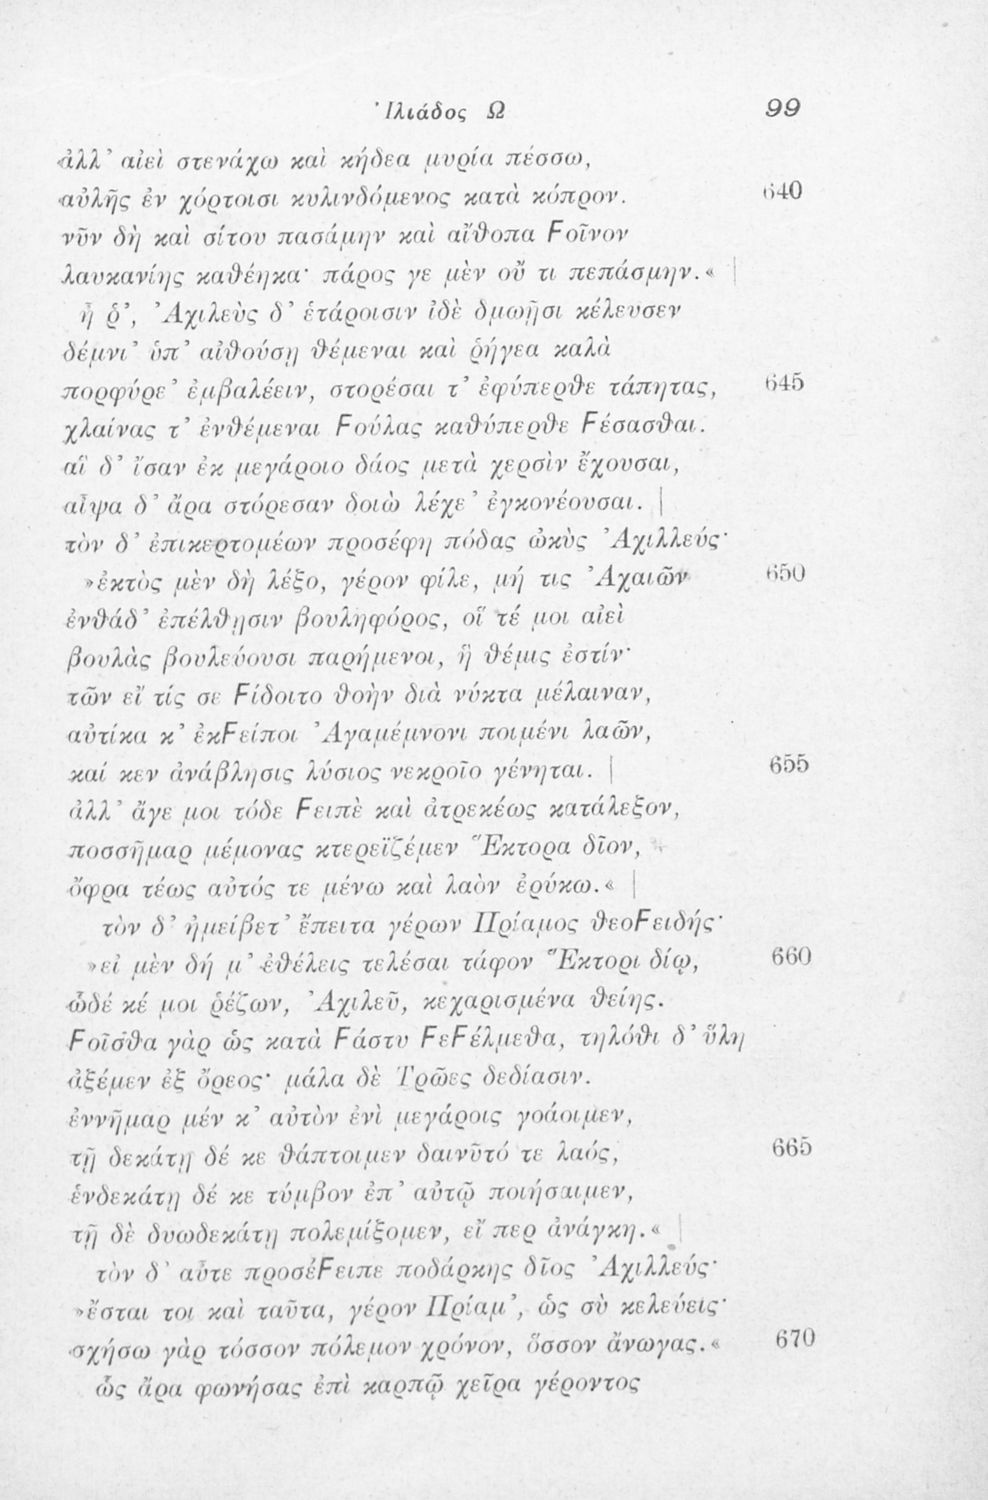 Ἰλιάδος Ω 99
ἀλλ’ αἰεὶ στενάχω καὶ κήδεα μυρία πέσσω,
αὐλῆς ἐν χόρτοισι κυλινδόμενος κατὰ κόπρον. 640
νῦν δὴ καὶ σίτου πασάμην καὶ αἴθοπα Ϝοῖνον
λαυκανίης καθέηκα· πάρος γε μὲν οὔ τι πεπάσμην.« |
ἦ ῥ’, Ἀχιλεὺς δ’ ἑτάροισιν ἰδὲ δμωῇσι κέλευσεν
δέμνι’ ὑπ’ αἰθούσῃ θέμεναι καὶ ῥήγεα καλὰ
πορφύρε’ ἐμβαλέειν, στορέσαι τ’ ἐφύπερθε τάπητας, 645
χλαίνας τ’ ἐνθέμεναι Ϝούλας καθύπερθε Ϝέσασθαι.
αἳ δ’ ἴσαν ἐκ μεγάροιο δάος μετὰ χερσὶν ἔχουσαι,
αἶψα δ’ ἄρα στόρεσαν δοιὼ λέχε’ ἐγκονέουσαι. |
τὸν δ’ ἐπικερτομέων προσέφη πόδας ὠκὺς Ἀχιλλεύς·
»ἐκτὸς μὲν δὴ λέξο, γέρον φίλε, μή τις Ἀχαιῶν 650
ἐνθάδ’ ἐπέλθῃσιν βουληφόρος, οἵ τέ μοι αἰεὶ
βουλὰς βουλεύουσι παρήμενοι, ἣ θέμις ἐστίν·
τῶν εἴ τίς σε Ϝίδοιτο θοὴν διὰ νύκτα μέλαιναν,
αὐτίκα κ’ ἐκϜείποι Ἀγαμέμνονι ποιμένι λαῶν,
καί κεν ἀνάβλησις λύσιος νεκροῖο γένηται. | 655
ἀλλ’ ἄγε μοι τόδε Ϝειπὲ καὶ ἀτρεκέως κατάλεξον,
ποσσῆμαρ μέμονας κτερεϊζέμεν Ἕκτορα δῖον,
ὄφρα τέως αὐτός τε μένω καὶ λαὸν ἐρύκω.« |
τὸν δ’ ἠμείβετ’ ἔπειτα γέρων Πρίαμος θεοϜειδής·
»εἰ μὲν δή μ’ ἐθέλεις τελέσαι τάφον Ἕκτορι δίῳ, 660
ὧδέ κέ μοι ῥέζων, Ἀχιλεῦ, κεχαρισμένα θείης.
Ϝοῖσθα γὰρ ὡς κατὰ Ϝάστυ ϜεϜέλμεθα, τηλόθι δ’ ὕλη
ἀξέμεν ἐξ ὄρεος· μάλα δὲ Τρῶες δεδίασιν.
ἐννῆμαρ μέν κ’ αὐτὸν ἐνὶ μεγάροις γοάοιμεν,
τῇ δεκάτῃ δέ κε θάπτοιμεν δαινῦτό τε λαός, 665
ἑνδεκάτῃ δέ κε τύμβον ἐπ’ αὐτῷ ποιήσαιμεν,
τῇ δὲ δυωδεκάτῃ πολεμίξομεν, εἴ περ ἀνάγκη.« |
τὸν δ’ αὖτε προσέϜειπε ποδάρκης δῖος Ἀχιλλεύς·
»ἔσται τοι καὶ ταῦτα, γέρον Πρίαμ’, ὡς σὺ κελεύεις·
σχήσω γὰρ τόσσον πόλεμον χρόνον, ὅσσον ἄνωγας.« 670
ὣς ἄρα φωνήσας ἐπὶ καρπῷ χεῖρα γέροντος